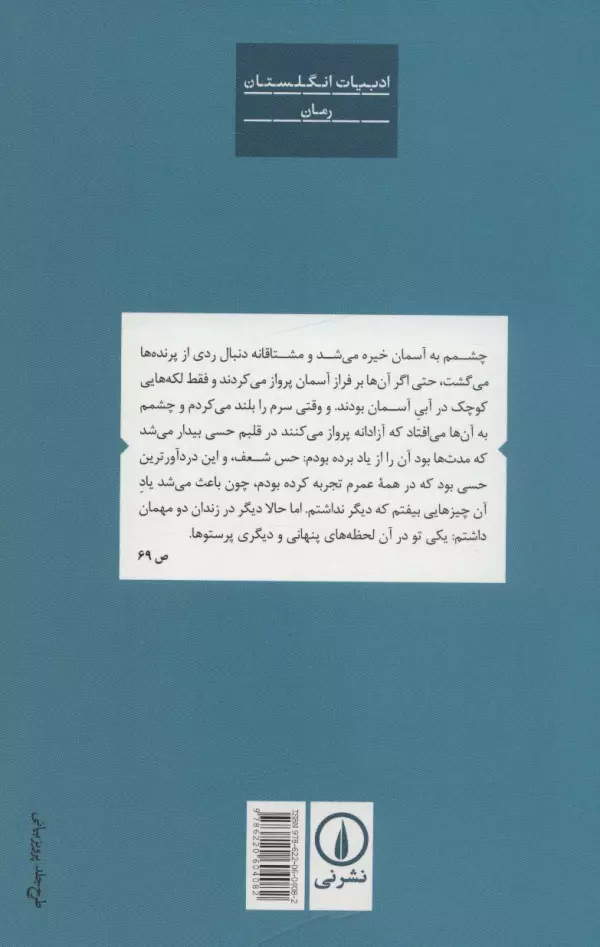 ادبیات انگلستان
رمان
چشمم به آسمان خیره می‌شد و مشتاقانه دنبال ردی از پرنده‌ها
می‌گشت، حتی اگر آن‌ها بر فراز آسمان پرواز می‌کردند و فقط لکه‌هایی
کوچک در آبیِ آسمان بودند. و وقتی سرم را بلند می‌کردم و چشمم
به آن‌ها می‌افتاد که آزادانه پرواز می‌کنند در قلبم حسی بیدار می‌شد
که مدت‌ها بود آن را از یاد برده بودم: حس شعف، و این دردآورترین
حسی بود که در همهٔ عمرم تجربه کرده بودم، چون باعث می‌شد یادِ
آن چیزهایی بیفتم که دیگر نداشتم. اما حالا دیگر در زندان دو مهمان
داشتم: یکی تو در آن لحظه‌های پنهانی و دیگری پرستوها.
ص ۶۹
ISBN 978-622-06-0408-2
9786220604082
نشرنی
طرح جلد: پرویز بیانی